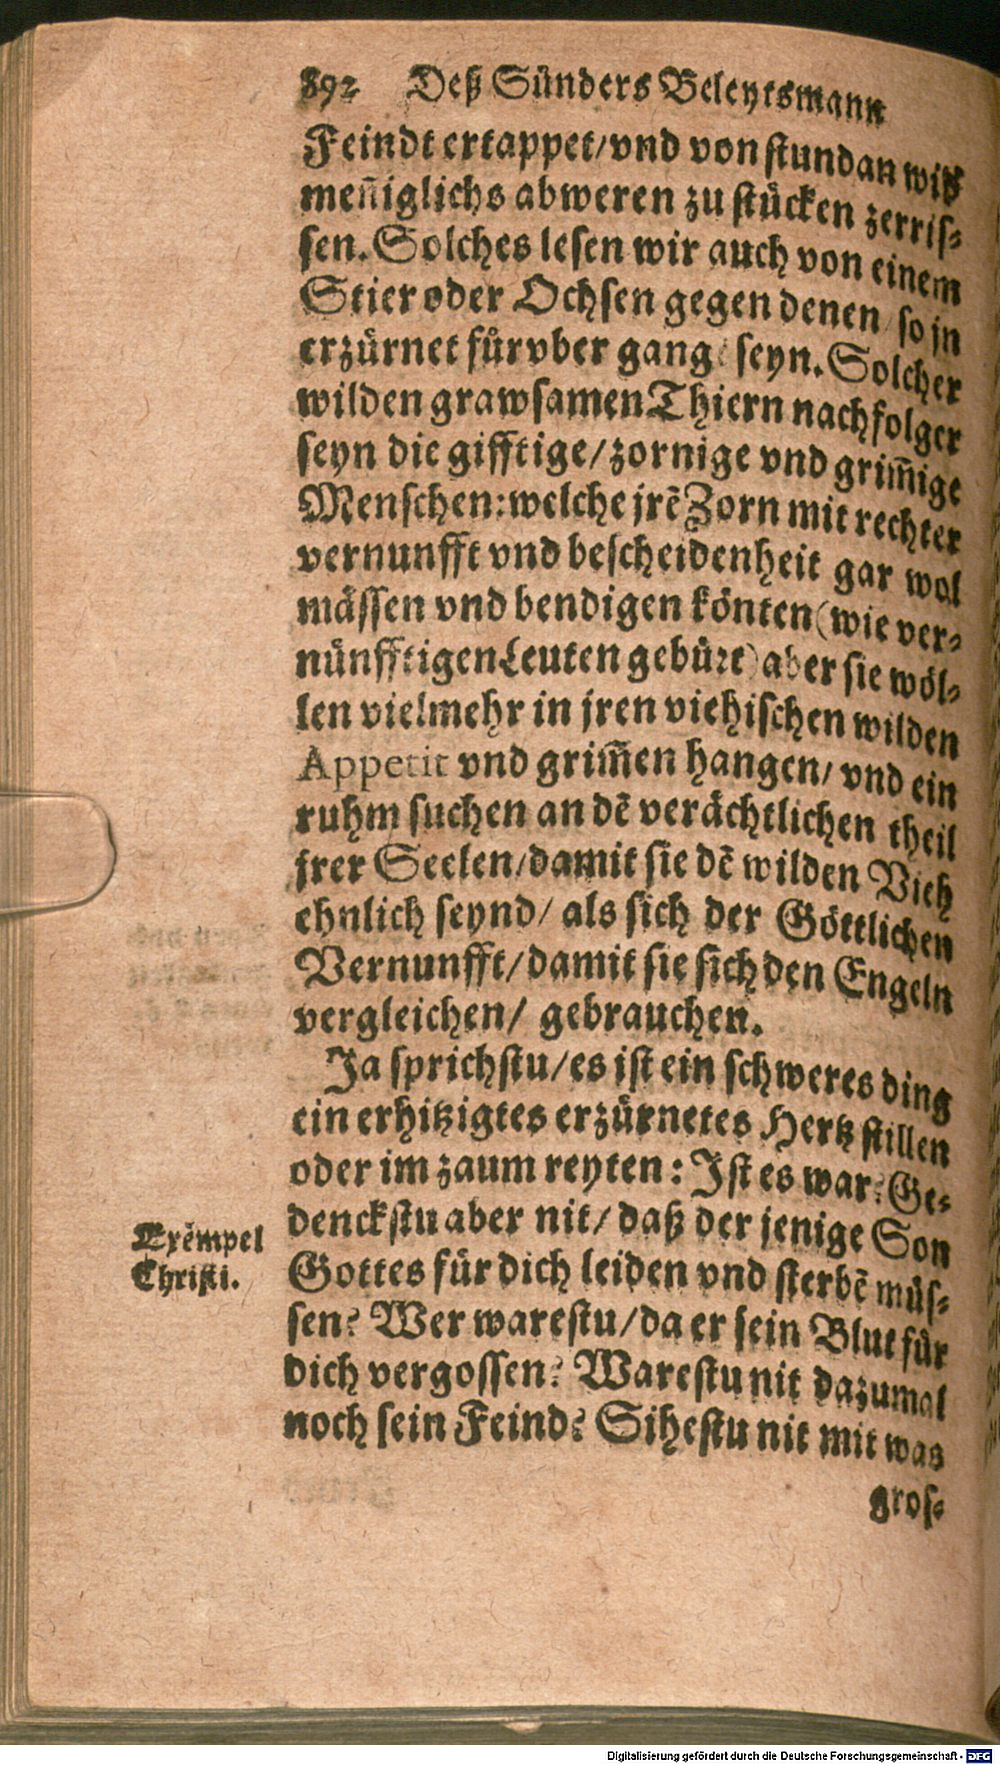 892 Deß Sünders Beleytsmann
Feindt ertappet/vnd von stundan wiß
meñiglichs abweren zu stücken zerris-
sen. Solches lesen wir auch von einem
Stier oder Ochsen gegen denen so jn
erzürnet fůrvber gang seyn. Solcher
wilden grawsamen Thiern nachfolger
seyn die gifftige/zornige vnd grim̃ige
Menschen: welche jrẽ Zorn mit rechter
vernunfft vnd bescheidenheit gar wol
mässen vnd bendigen könten (wie ver-
nünfftigen Leuten gebürt) aber sie wöl-
len vielmehr in jren viehischen wilden
Appetit vnd grim̃en hangen/ vnd ein
ruhm suchen an dẽ verächtlichen theil
jrer Seelen/damit sie dẽ wilden Vieh
ehnlich seynd/ als sich der Göttlichen
Vernunfft/damit sie sich den Engeln
vergleichen/ gebrauchen.
Ja sprichstu/es ist ein schweres ding
ein erhitzigtes erzürnetes Hertz stillen
oder im zaum reyten: Ist es war? Ge-
denckstu aber nit/ daß der jenige Son
Gottes für dich leiden vnd sterbẽ müs-
sen? Wer warestu/da er sein Blut für
dich vergossen? Warestu nit dazumal
noch sein Feind? Sihestu nit mit was
gros-
Exempel
Christi.
Digitalisierung gefördert durch die Deutsche Forschungsgemeinschaft - DFG